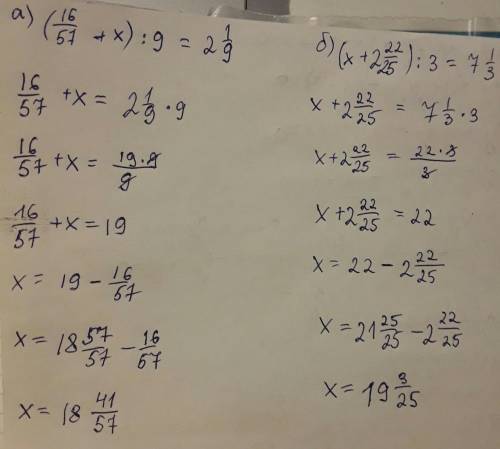 а) (16/57 + x) : 9 = 2 1/9
16/57 + x = 2 1/9 · 9
16/57 + x = 19·9/9
16/57 + x = 19
x = 19 - 16/57
x = 18 57/57 - 16/57
x = 18 41/57
б) (x + 2 22/25) : 3 = 7 1/3
x + 2 22/25 = 7 1/3 · 3
x + 2 22/25 = 22·3/3
x + 2 22/25 = 22
x = 22 - 2 22/25
x = 21 25/25 - 2 22/25
x = 19 3/25